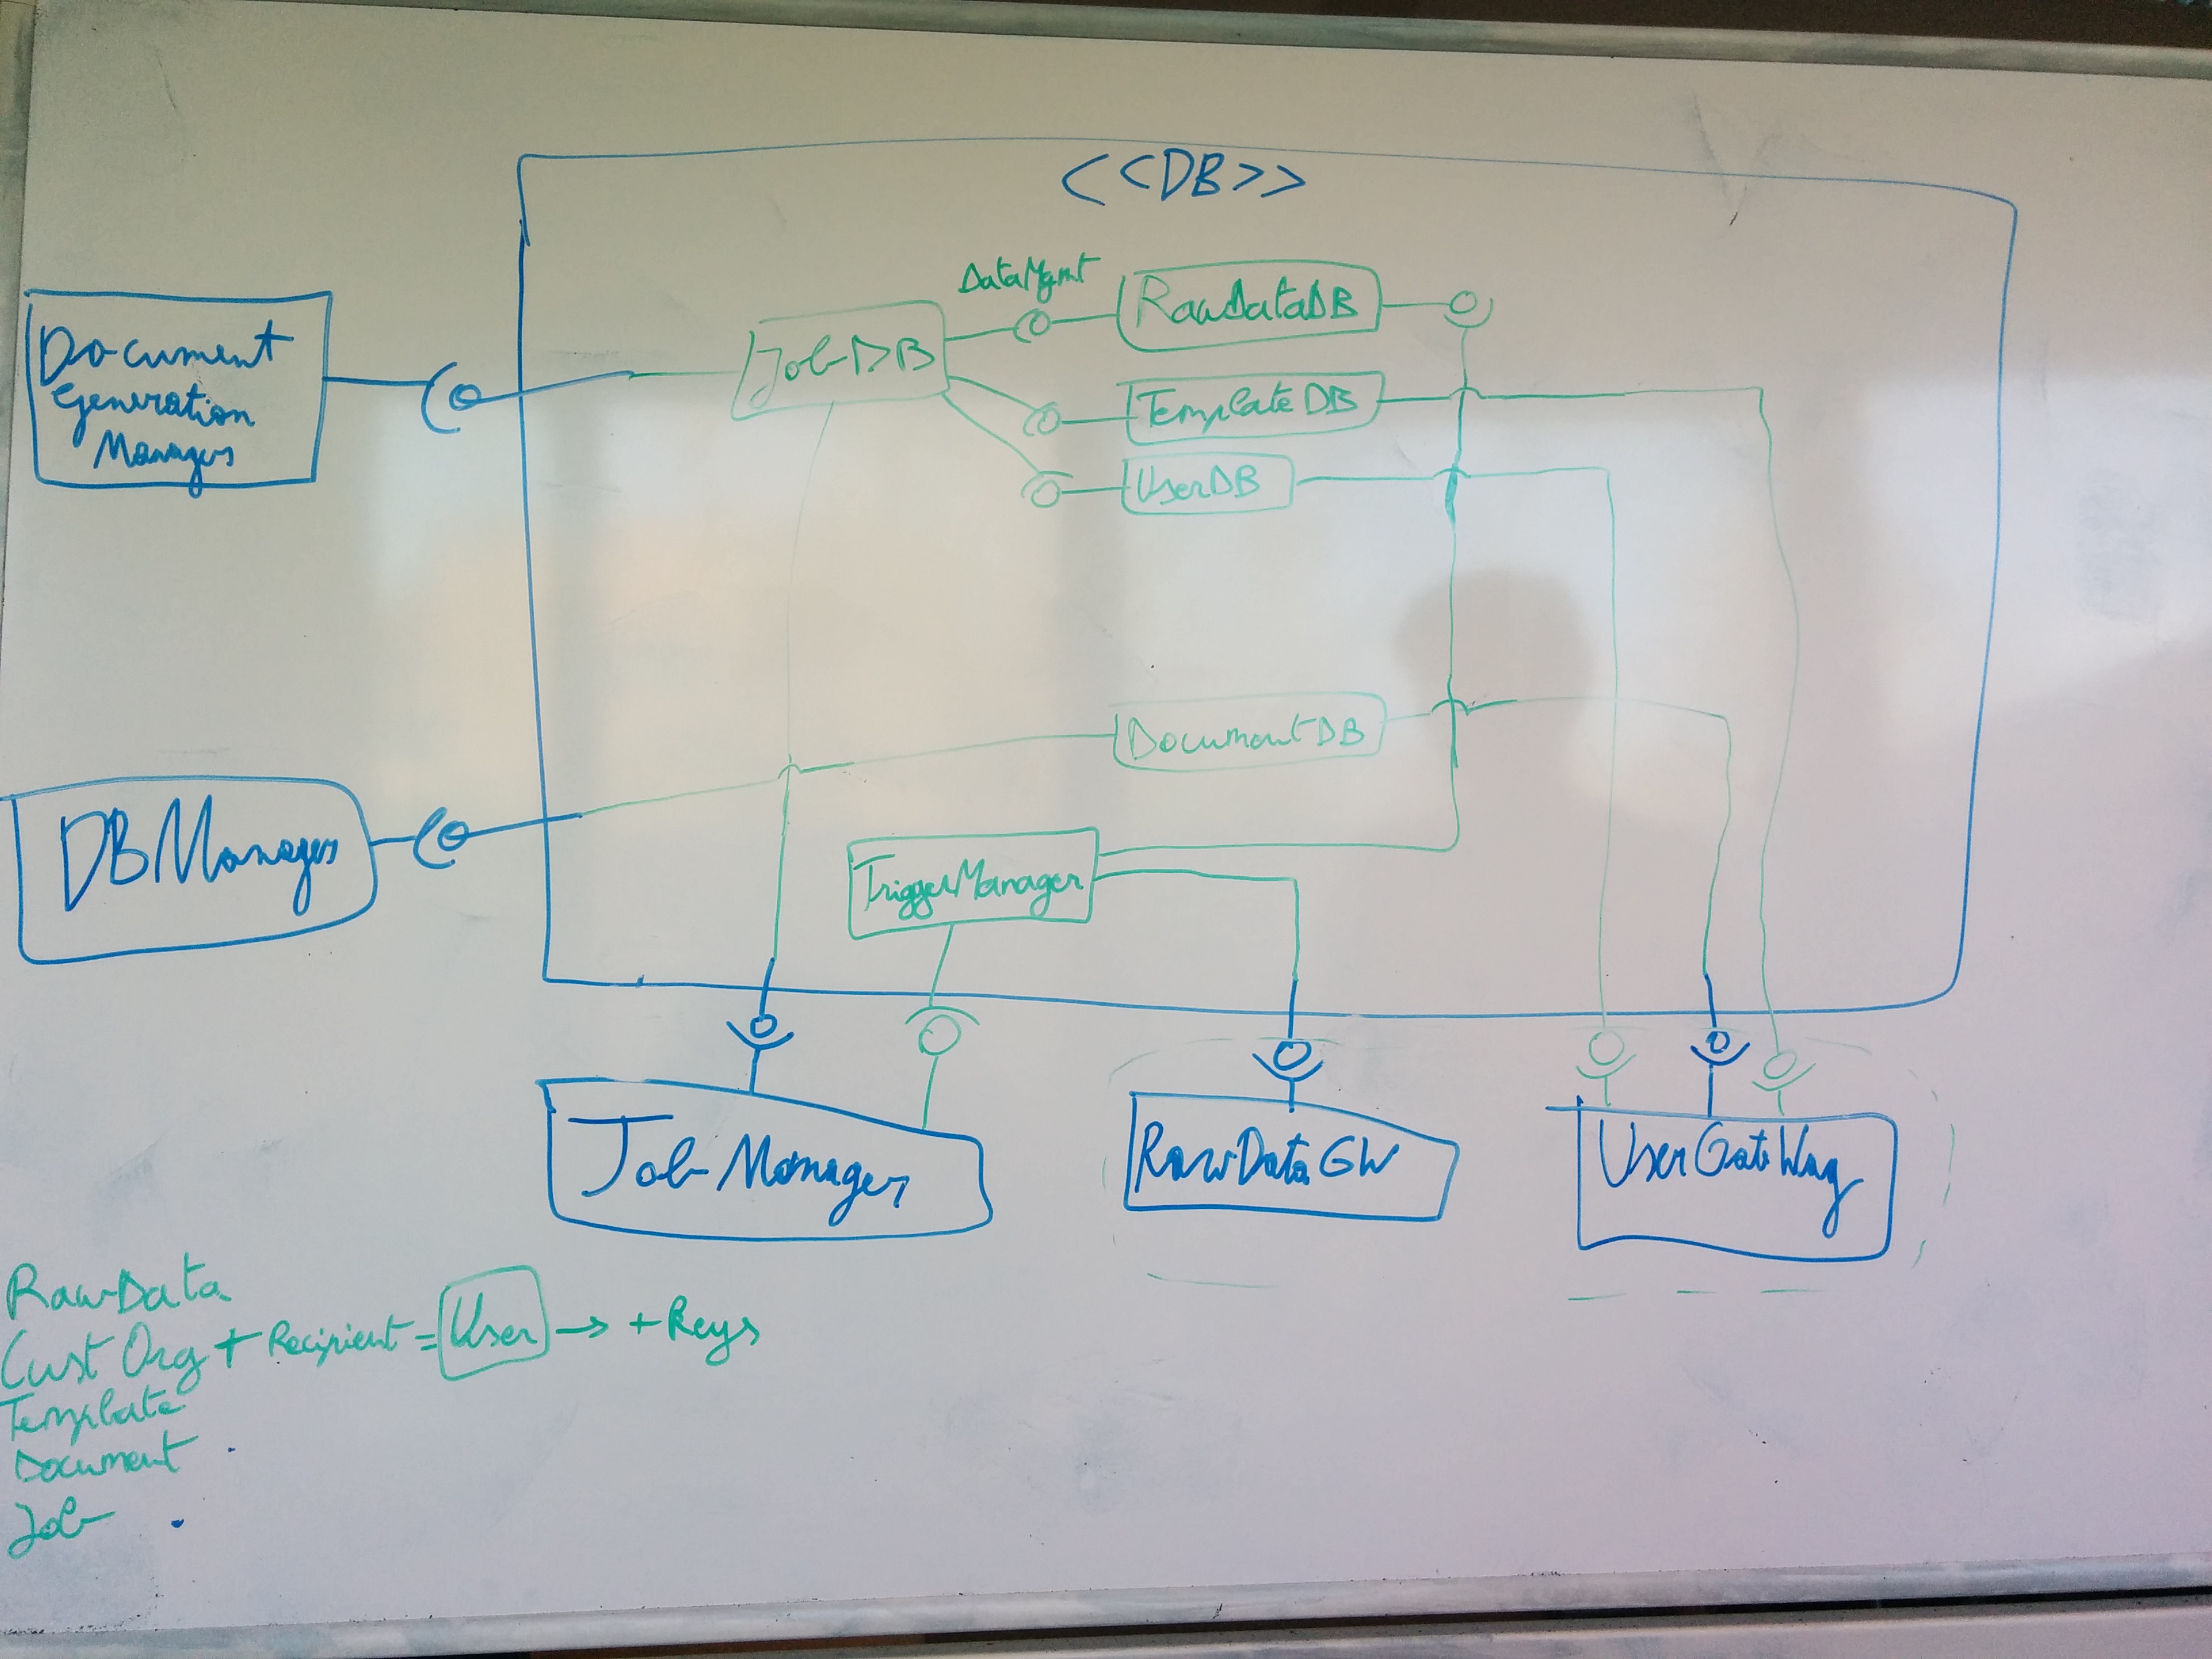 <<DB>>
DataMgmt
RawDataDB
Document
Generation
Manager
JobDB
TemplateDB
UserDB
DocumentDB
DBManager
TriggerManager
JobManager
RawDataGW
UserGateWay
RawData
Cust Org + Recipient = User → + Keys
Template
Document
Job